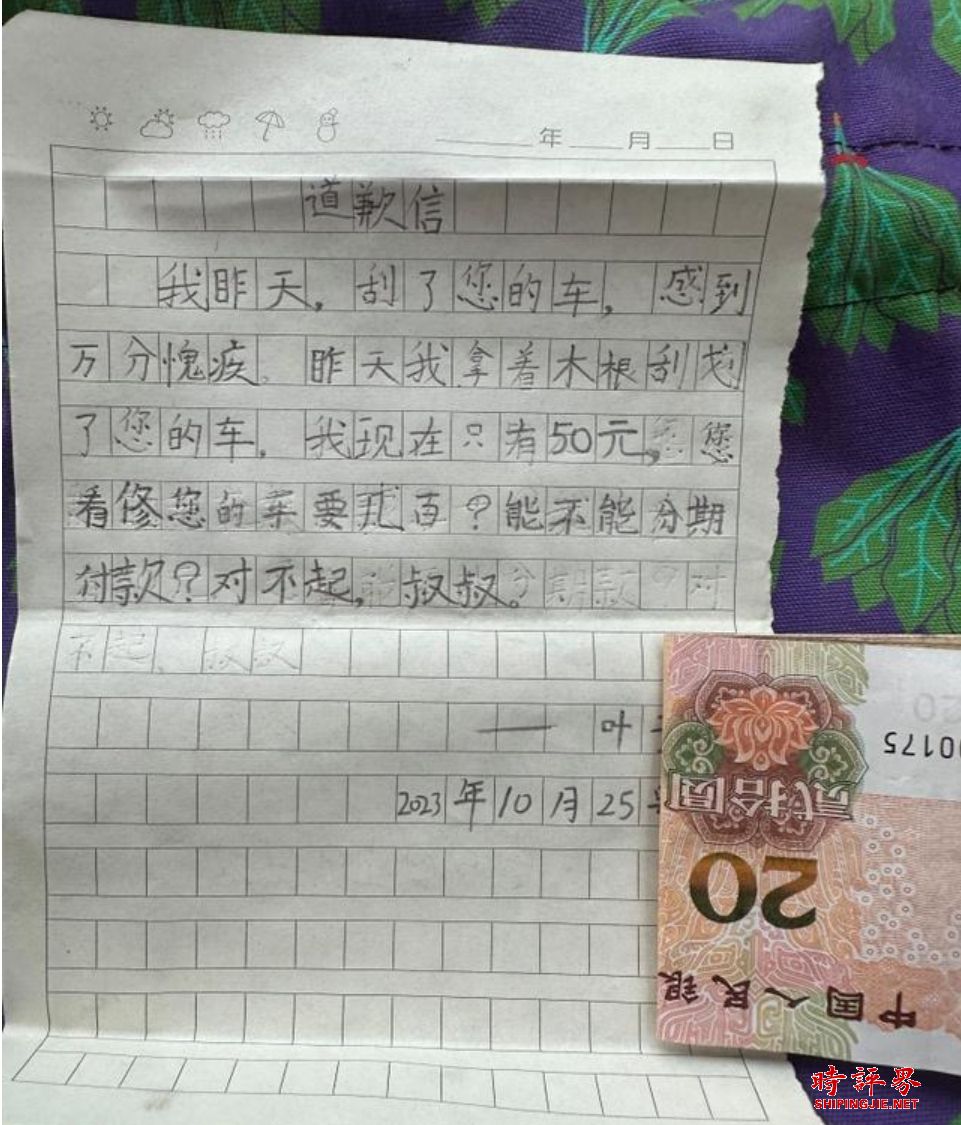 年 月 日
道歉信
我昨天，刮了您的车，感到
万分愧疚。昨天我拿着木根刮划
了您的车。我现在只有50元，您
看修您的车要几百？能不能分期
付款？对不起，叔叔。分期款？对
不起、叔叔
——叶
2023年10月25
00175
贰拾圆
20
中国人民银
時評界
SHIPINGJIE.NET